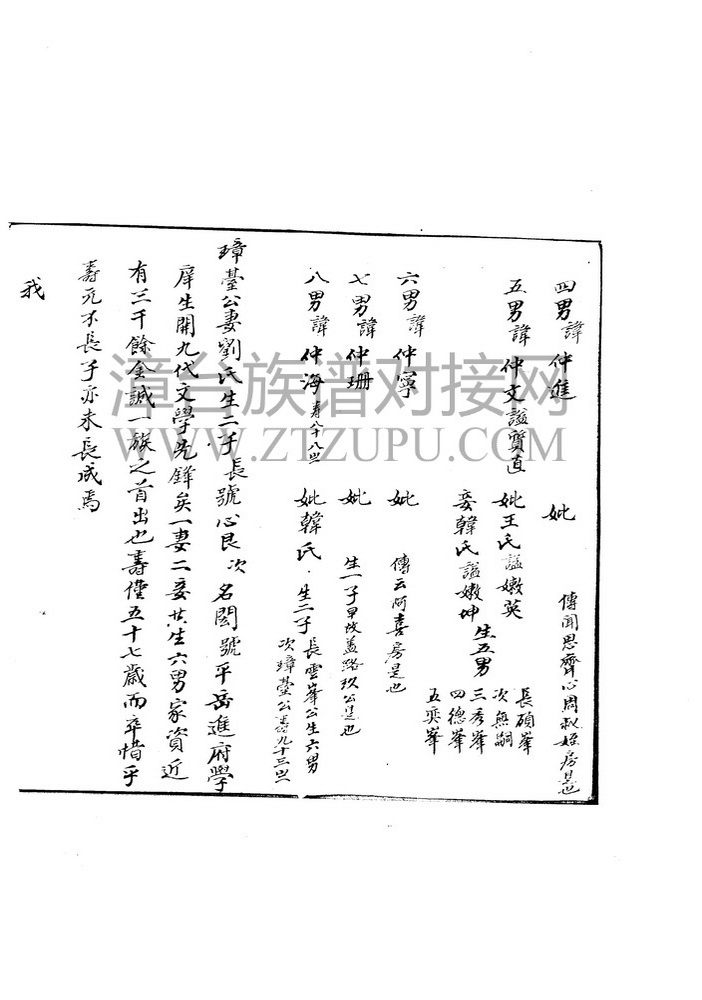 四男諱 仲進 妣 傳聞思齊心周叔姪房是也
五男諱 仲文謚質直 妣王氏謚嫩英
妾韓氏謚嫩坤 生五男
長碩峯
次無嗣
三秀峯
四德峯
五奕峯
六男諱 仲寧 妣 傳云阿喜房是也
七男諱 仲珊 妣 生一子早故蓋路玖公是也
八男諱 仲海 壽八十八岁 妣韓氏 生二子 長雲峯公生六男
次璋臺公壽九十三岁
璋臺公妻劉氏生二子長號心艮次名閎號平岳進府學
庠生開九代文學先鋒矣一妻二妾共生六男家資近
有三千餘金誠一族之首出也壽僅五十七歲而卒惜乎
壽元不長子亦未長成焉
我
漳台族谱对接网
WWW.ZTZUPU.COM